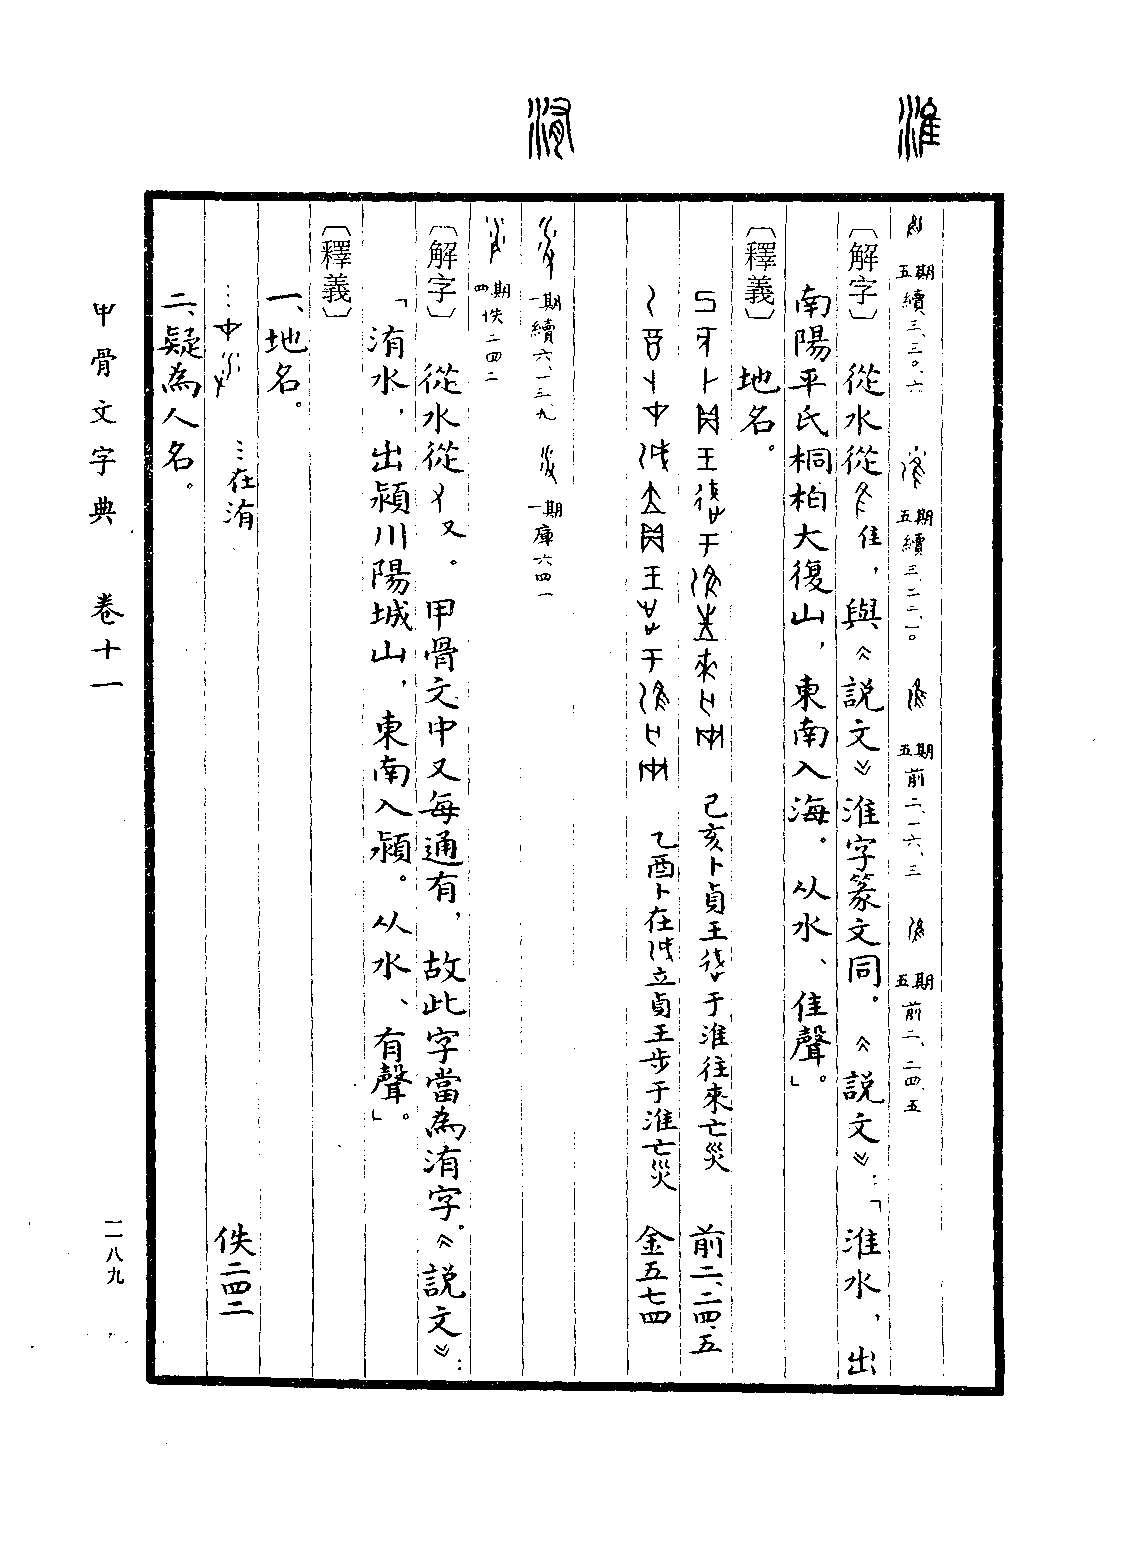 淮
五期 續三、三〇、六 五期 續三、二三、一〇 五期 前二、一六、三 五期 前二、二四、五
〔解字〕 從水從隹，與《説文》淮字篆文同。《説文》：「淮水，出
南陽平氏桐柏大復山，東南入海。从水、隹聲」。
〔釋義〕 地名。
己亥卜貞王于淮往來亡災 前二、二四、五
乙酉卜在立貞王步于淮亡災 金五七四
洧
一期 續六、一三、九 一期 庫六四一
四期 佚二四二
〔解字〕 從水從又。甲骨文中又每通有，故此字當為洧字。《説文》：
「洧水，出潁川陽城山，東南入潁。从水、有聲」。
〔釋義〕
一、地名。
…在洧… 佚二四二
二、疑為人名。
甲骨文字典 卷十一
一一八九